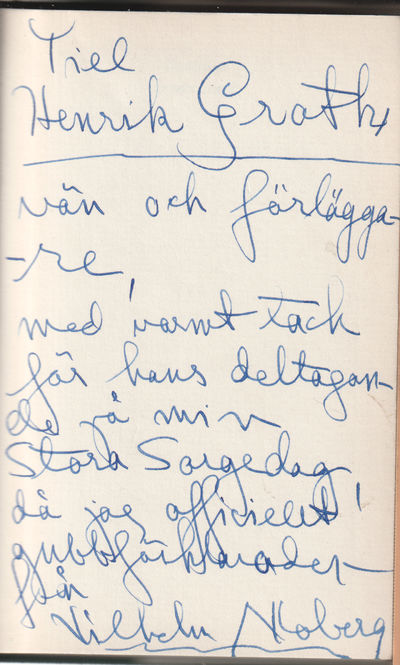 Till
Henrik Groth,
vän och förlägga-
-re,
med varmt tack
för hans deltagan-
de på min
Stora Sorgedag
då jag officiellt
gubbförklarades
från
Vilhelm Moberg